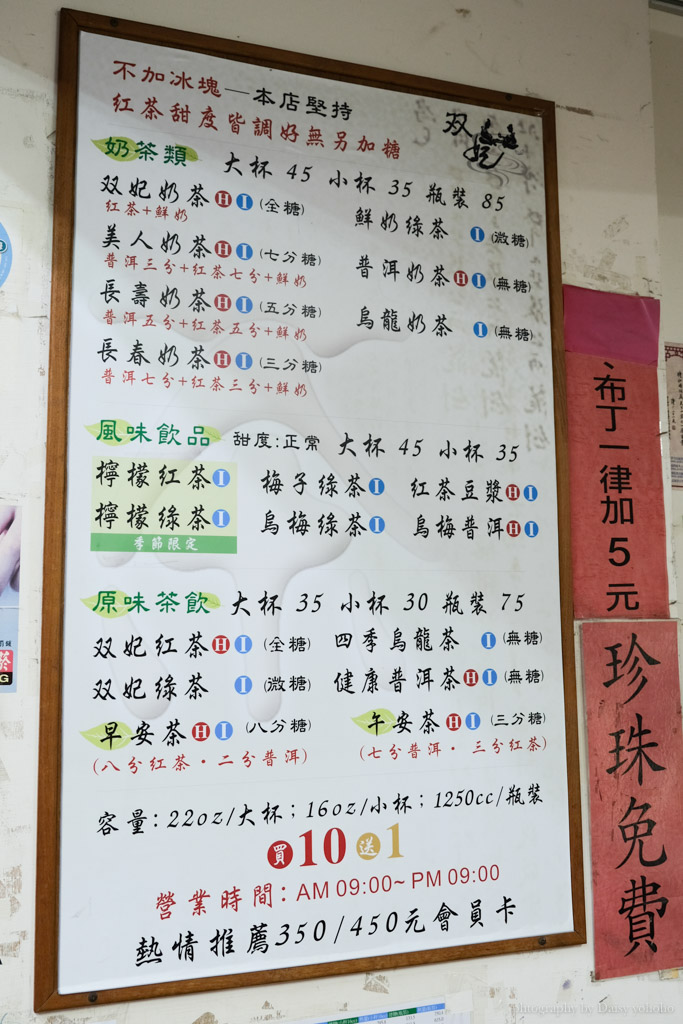 不加冰塊—本店堅持
紅茶甜度皆調好無另加糖
双妃
奶茶類 大杯 45 小杯 35 瓶裝 85
双妃奶茶 H I (全糖)
紅茶+鮮奶
鮮奶綠茶 I (微糖)
美人奶茶 H I (七分糖)
普洱三分+紅茶七分+鮮奶
普洱奶茶 H I (無糖)
長壽奶茶 H I (五分糖)
普洱五分+紅茶五分+鮮奶
烏龍奶茶 I (無糖)
長春奶茶 H I (三分糖)
普洱七分+紅茶三分+鮮奶
風味飲品 甜度:正常 大杯 45 小杯 35
檸檬紅茶 I 梅子綠茶 I 紅茶豆漿 H I
檸檬綠茶 I 烏梅綠茶 I 烏梅普洱 H I
季節限定
原味茶飲 大杯 35 小杯 30 瓶裝 75
双妃紅茶 H I (全糖) 四季烏龍茶 I (無糖)
双妃綠茶 I (微糖) 健康普洱茶 H I (無糖)
早安茶 H I (八分糖) 午安茶 H I (三分糖)
(八分紅茶·二分普洱) (七分普洱·三分紅茶)
容量:22oz/大杯;16oz/小杯;1250cc/瓶裝
買10送1
營業時間:AM 09:00~PM 09:00
熱情推薦350/450元會員卡
、布丁一律加5元
珍珠免費